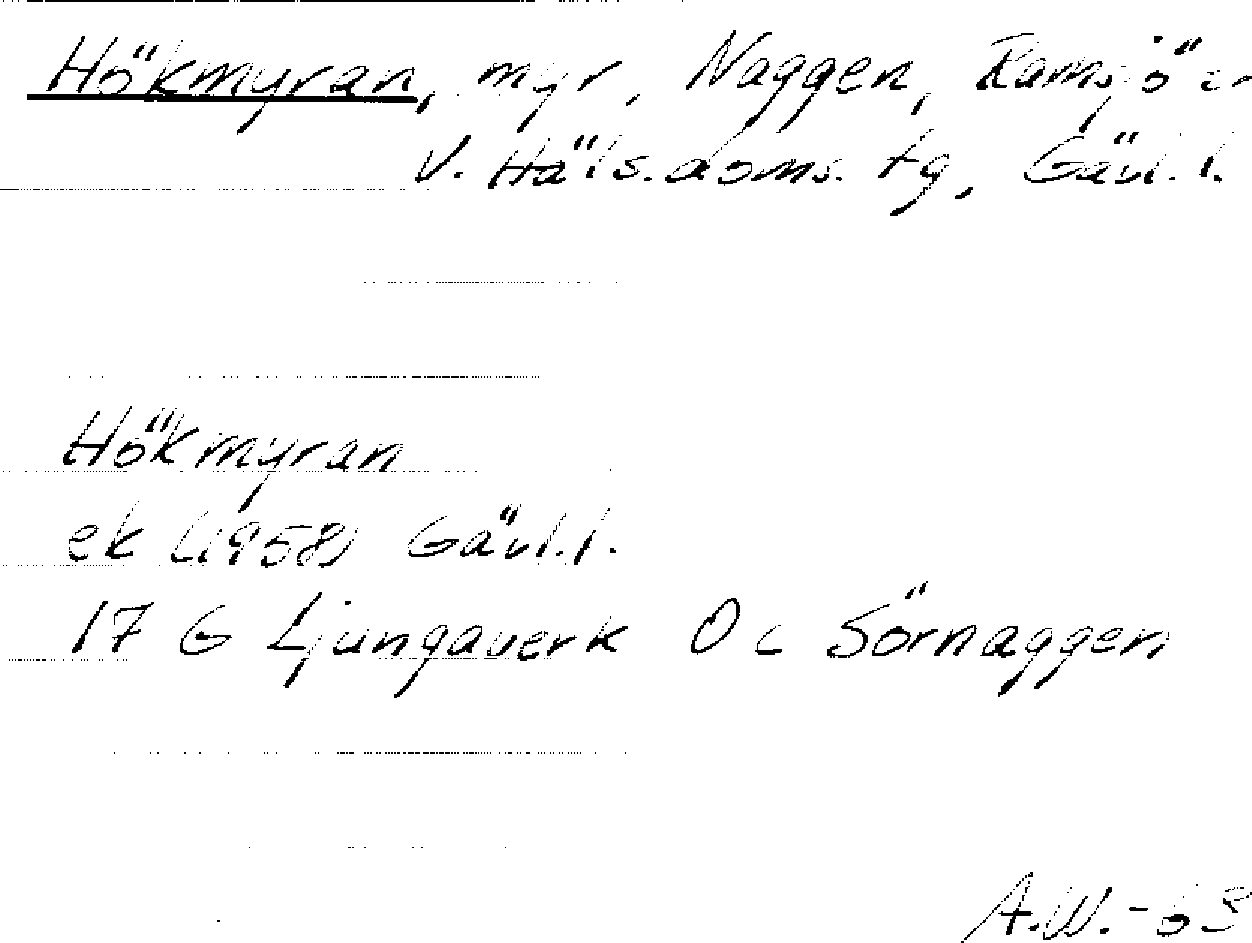 Hökmyran, myr, Naggen, Ramsjö
V. Häls. doms. tg, Gävl. l.
Hökmyran
ek (1958) Gävl. l.
17 G Ljungaverk O c Sörnaggen
A.W.-63